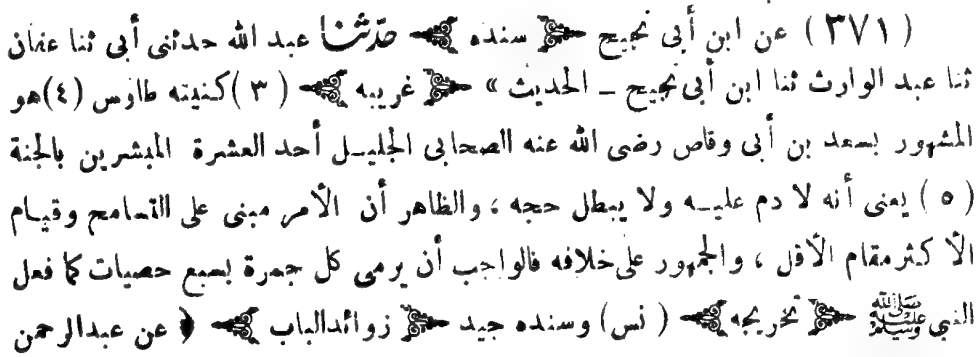 (٣٧١) عن ابن أبى نجيح ﴿ سنده ﴾ حدّثنا عبد الله حدثنى أبى ثنا عفان
ثنا عبد الوارث ثنا ابن أبى نجيح ـ الحديث » ﴿ غريبه ﴾ (٣) كنيته طاوس (٤) هو
المشهور بسعد بن أبى وقاص رضى الله عنه الصحابى الجليل أحد العشرة المبشرين بالجنة
(٥) يعنى أنه لا دم عليه ولا يبطل حجه ، والظاهر أن الأمر مبنى على التسامح وقيام
الأكثر مقام الأقل ، والجمهور على خلافه فالواجب أن يرمى كل جمرة بسبع حصيات كما فعل
النبى ﷺ ﴿ تخريجه ﴾ (نس) وسنده جيد ﴿ زوائد الباب ﴾ ﴿ عن عبد الرحمن